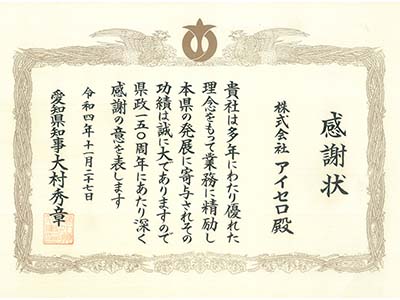 感謝状
株式会社 アイセロ殿
貴社は多年にわたり優れた
理念をもって業務に精励し
本県の発展に寄与されその
功績は誠に大でありますので
県政一五〇周年にあたり深く
感謝の意を表します
令和四年十一月二十七日
愛知県知事大村秀章